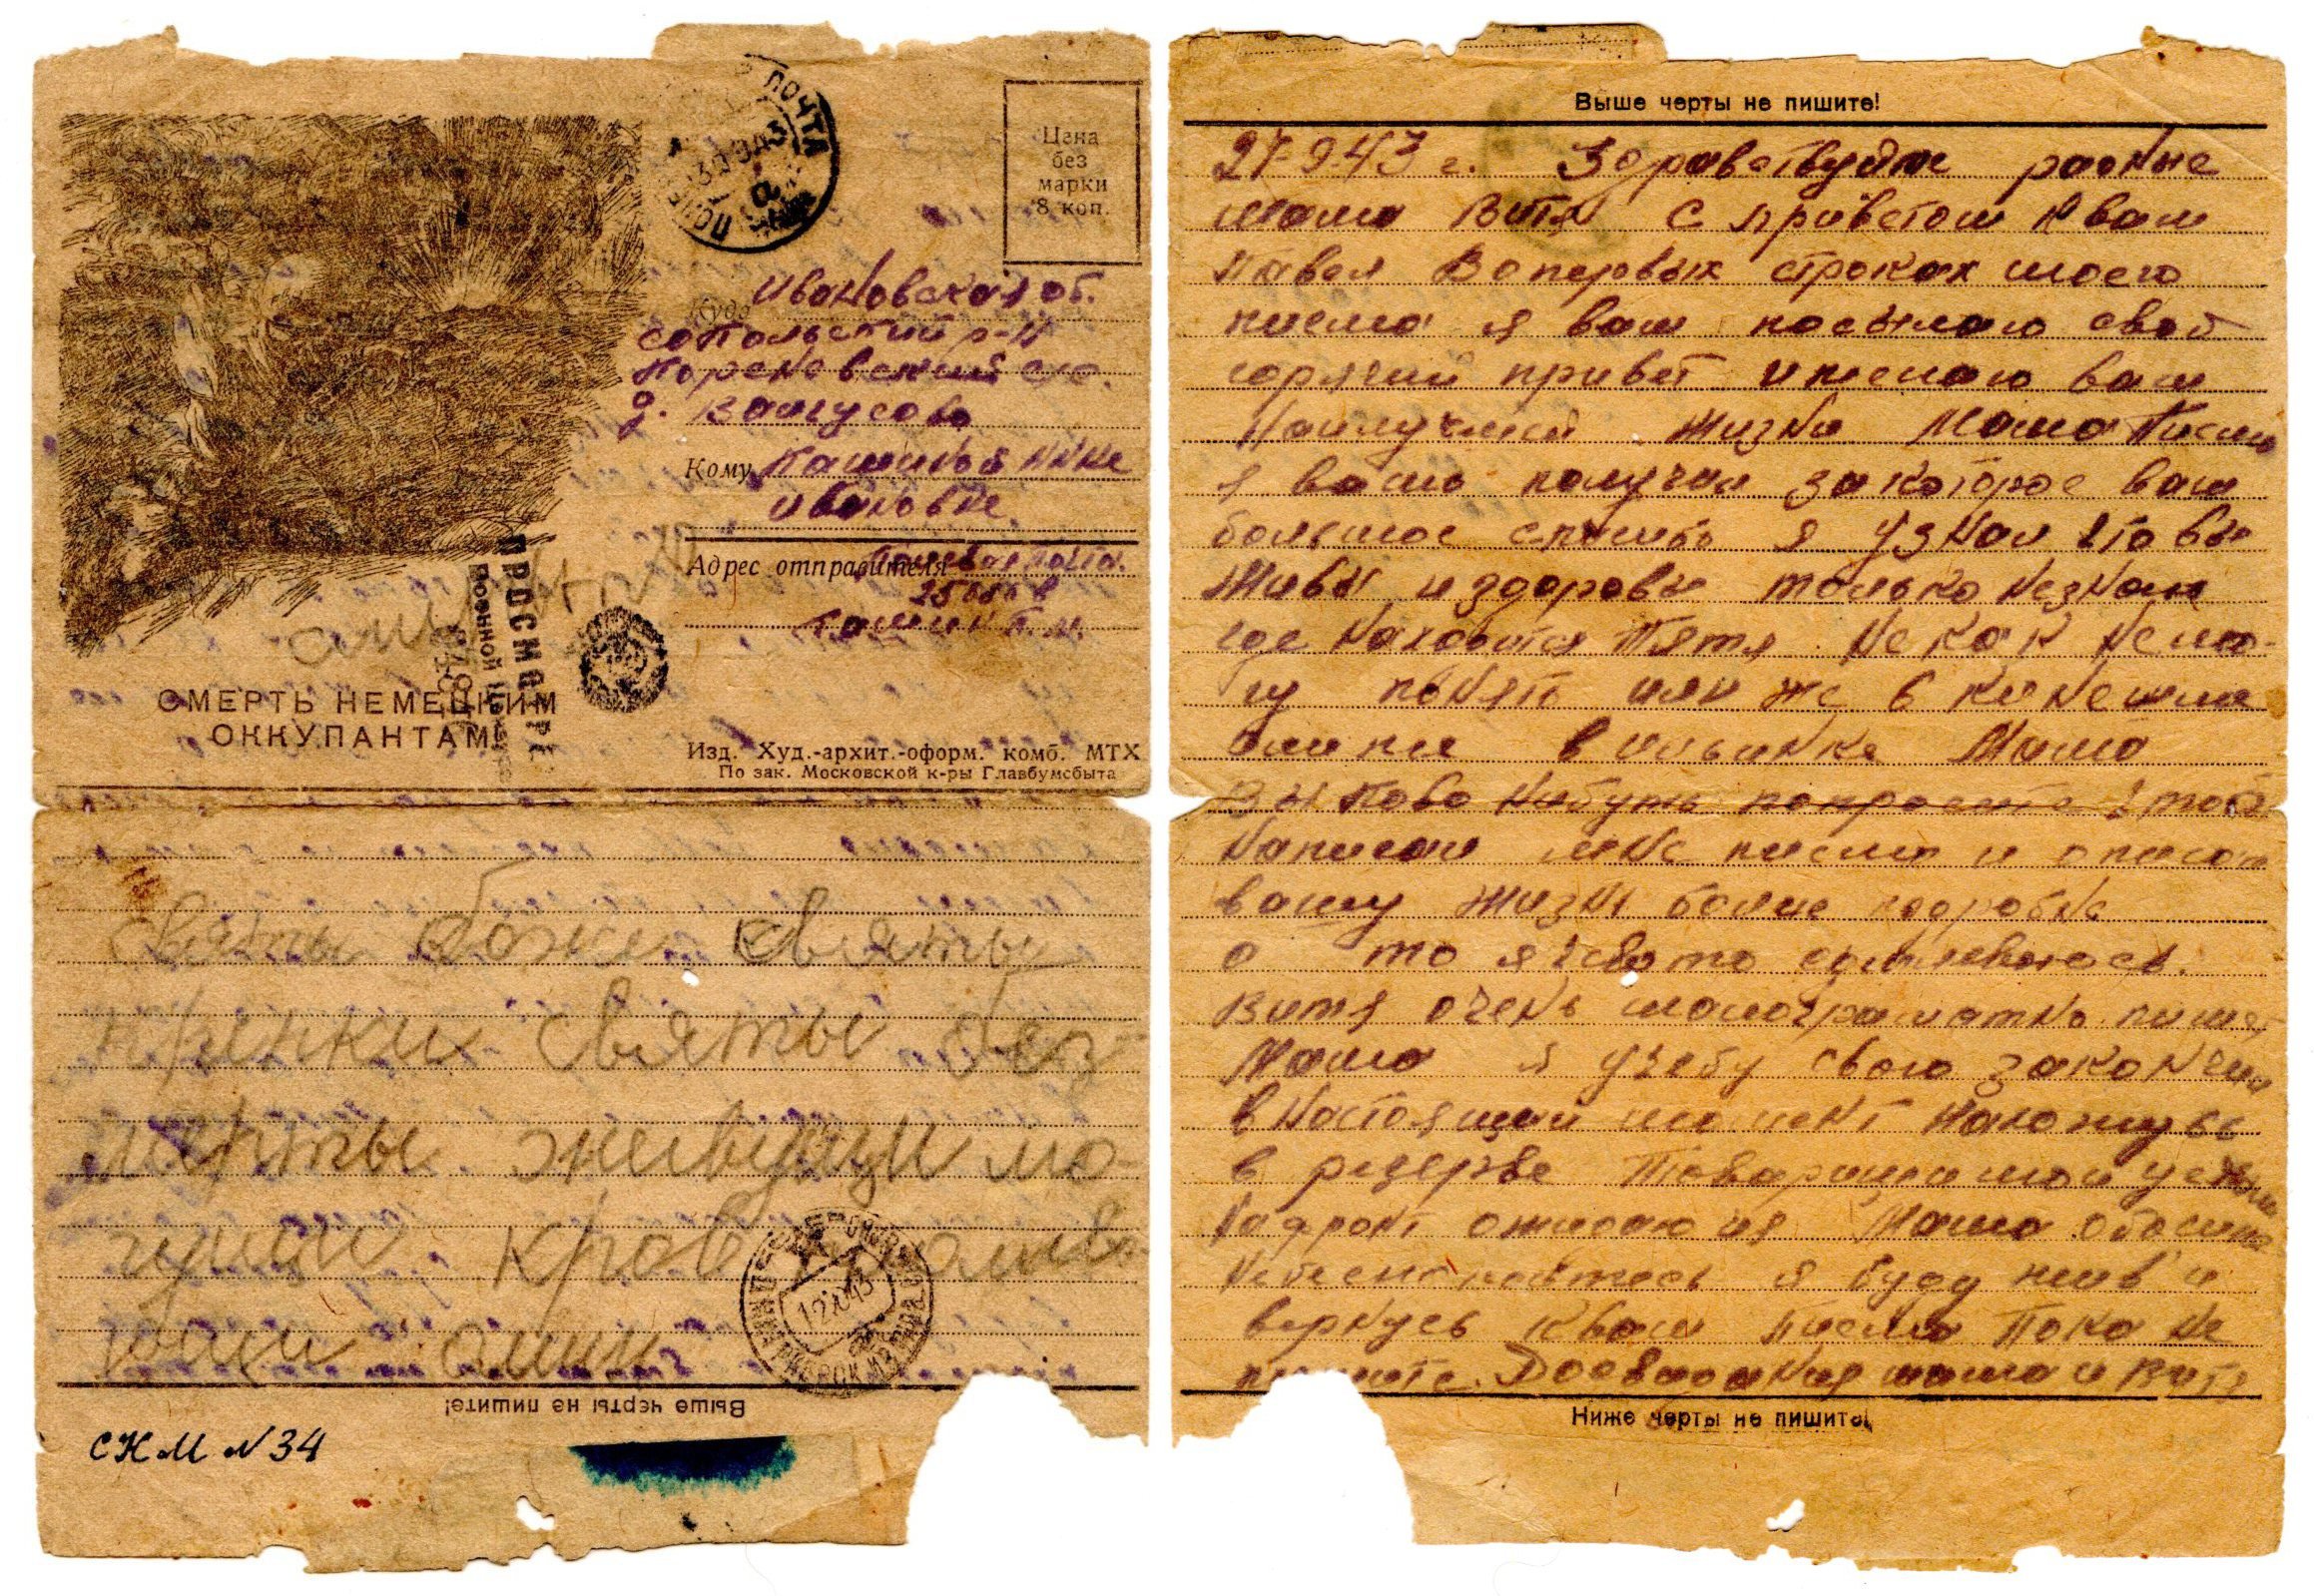 ПОЧТА
30 9 43
Цена
без
марки
8 коп.
Куда
Ивановская об.
р-н
д.
Кому Пашиной Нине
Ивановне.
Адрес отправителя Полевая почта.
Пашин П. И.
ПРОСМОТРЕНО
Военной Цензурой
СМЕРТЬ НЕМЕЦКИМ
ОККУПАНТАМ!
Изд. Худ.-архит.-оформ. комб. МТХ
По зак. Московской к-ры Главбумсбыта
святы боже святы
крепки святы без-
мерты живущи по-
кров
ами амин
12 X 43
Выше черты не пишите!
СКМ N 34
Выше черты не пишите!
27-9-43 г. Здравствуйте родные
мама Витя с приветом к вам
Павел Вопервых строках моего
писма я вам посылаю свой
горячий привет и желаю вам
Наилучшей жизни Мама Писмо
я ваше получил за которое вам
большое спасибо я узнал что вы
живы и здоровы только незнаю
где находится Петя некак немо-
гу понять или же в кинешме
или в Мама
Вы ково нибуть попросите чтоб
написали мне писмо и описали
вашу жизнь более подробно
а то я чевото сумлеваюсь.
Витя очень малограматно пишет
Мама я учебу свою закончил
в настоящий момент нахожусь
в резерве Товарищи мои уехали
на фронт ожидаю и я Мама обо мне
небеспокойтесь я буду жив и
вернусь квам Писмо Пока не
пишите. Досвидания мама и Витя
Ниже черты не пишите!